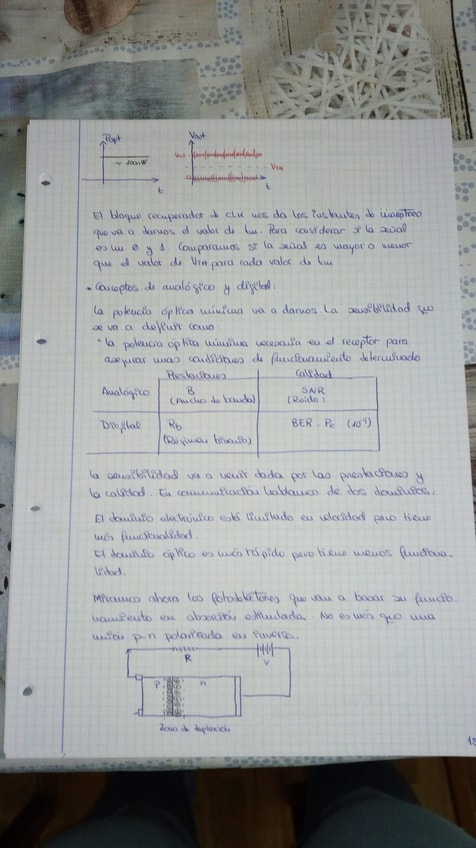 Popt
Vout
~ 100nW
VTH
t
t
El bloque recuperador d clk nos da los instantes de muestreo
que va a darnos el valor de tm. Para considerar si la señal
es un 0 y 1. Comparamos si la señal es mayor o menor
que el valor de VTH para cada valor de tm
• Conceptos de analógico y digital:
La potencia óptica mínima va a darnos la sensibilidad que
se va a definir como:
"la potencia óptica mínima necesaria en el receptor para
asegurar unas condiciones de funcionamiento determinado
Prestaciones Calidad
Analógico B SNR
(Ancho de banda) (Ruido)
Digital Rb BER - Pe
(Régimen binario)
La sensibilidad va a venir dada por las prestaciones y
la calidad. En comunicación hablamos de dos dominios:
El dominio electrónico está limitado en velocidad pero tiene
más funcionalidad.
El dominio óptico es más rápido pero tiene menos funciona-
lidad.
Miramos ahora los fotodetectores que van a basar su funcio
namiento en absorción estimulada. No es más que una
unión p-n polarizada en inversa.
R V
p n
Zona de deplexión